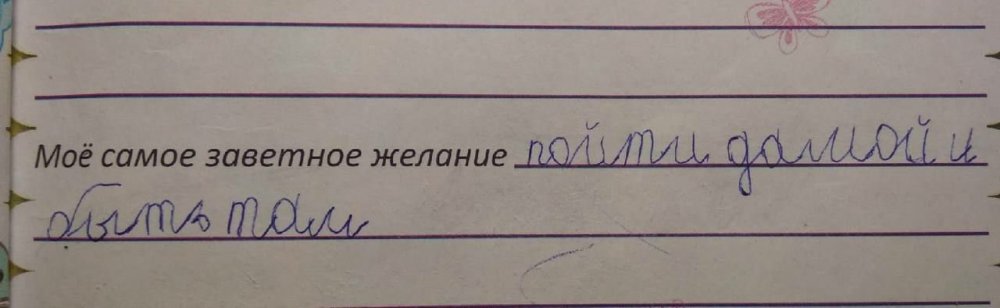 Моё самое заветное желание пойти дамой и
быть там